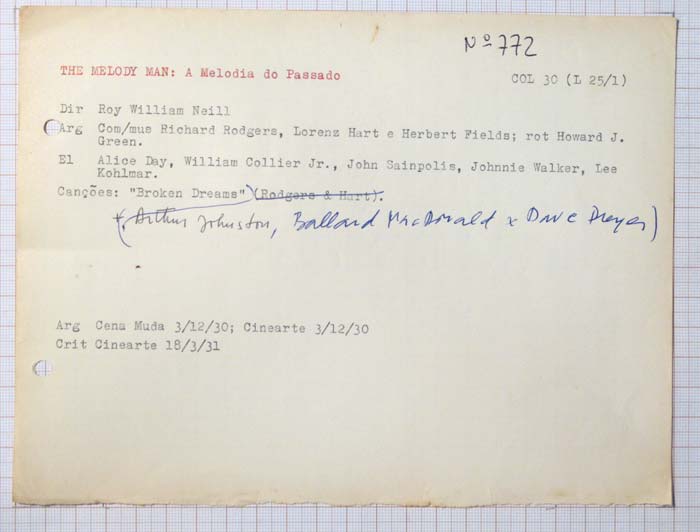 Nº 772
THE MELODY MAN: A Melodia do Passado
COL 30 (L 25/1)
Dir Roy William Neill
Arg Com/mus Richard Rodgers, Lorenz Hart e Herbert Fields; rot Howard J.
Green.
El Alice Day, William Collier Jr., John Sainpolis, Johnnie Walker, Lee
Kohlmar.
Canções: "Broken Dreams" (Rodgers & Hart).
(Arthur Johnston, Ballard MacDonald & Dave Dreyer)
Arg Cena Muda 3/12/30; Cinearte 3/12/30
Crit Cinearte 18/3/31